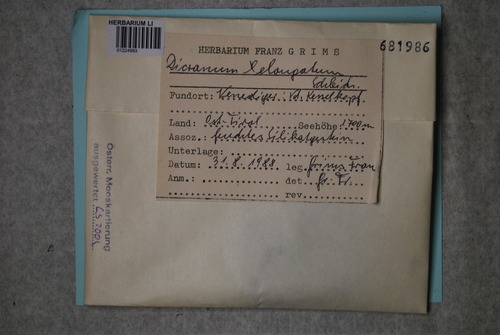 HERBARIUM LI
01224963
681986
HERBARIUM FRANZ GRIMS
Dicranum elongatum
Schleich.
Fundort: Venediger
Land: Ost-Tirol Seehöhe: 1700m
Assoz.: feuchtes Silikatgestein
Unterlage:
Datum: 31.8.1988 leg. Grims Franz
Anm.: det. Gr. Fr.
rev.
Österr. Mooskartierung
ausgewertet